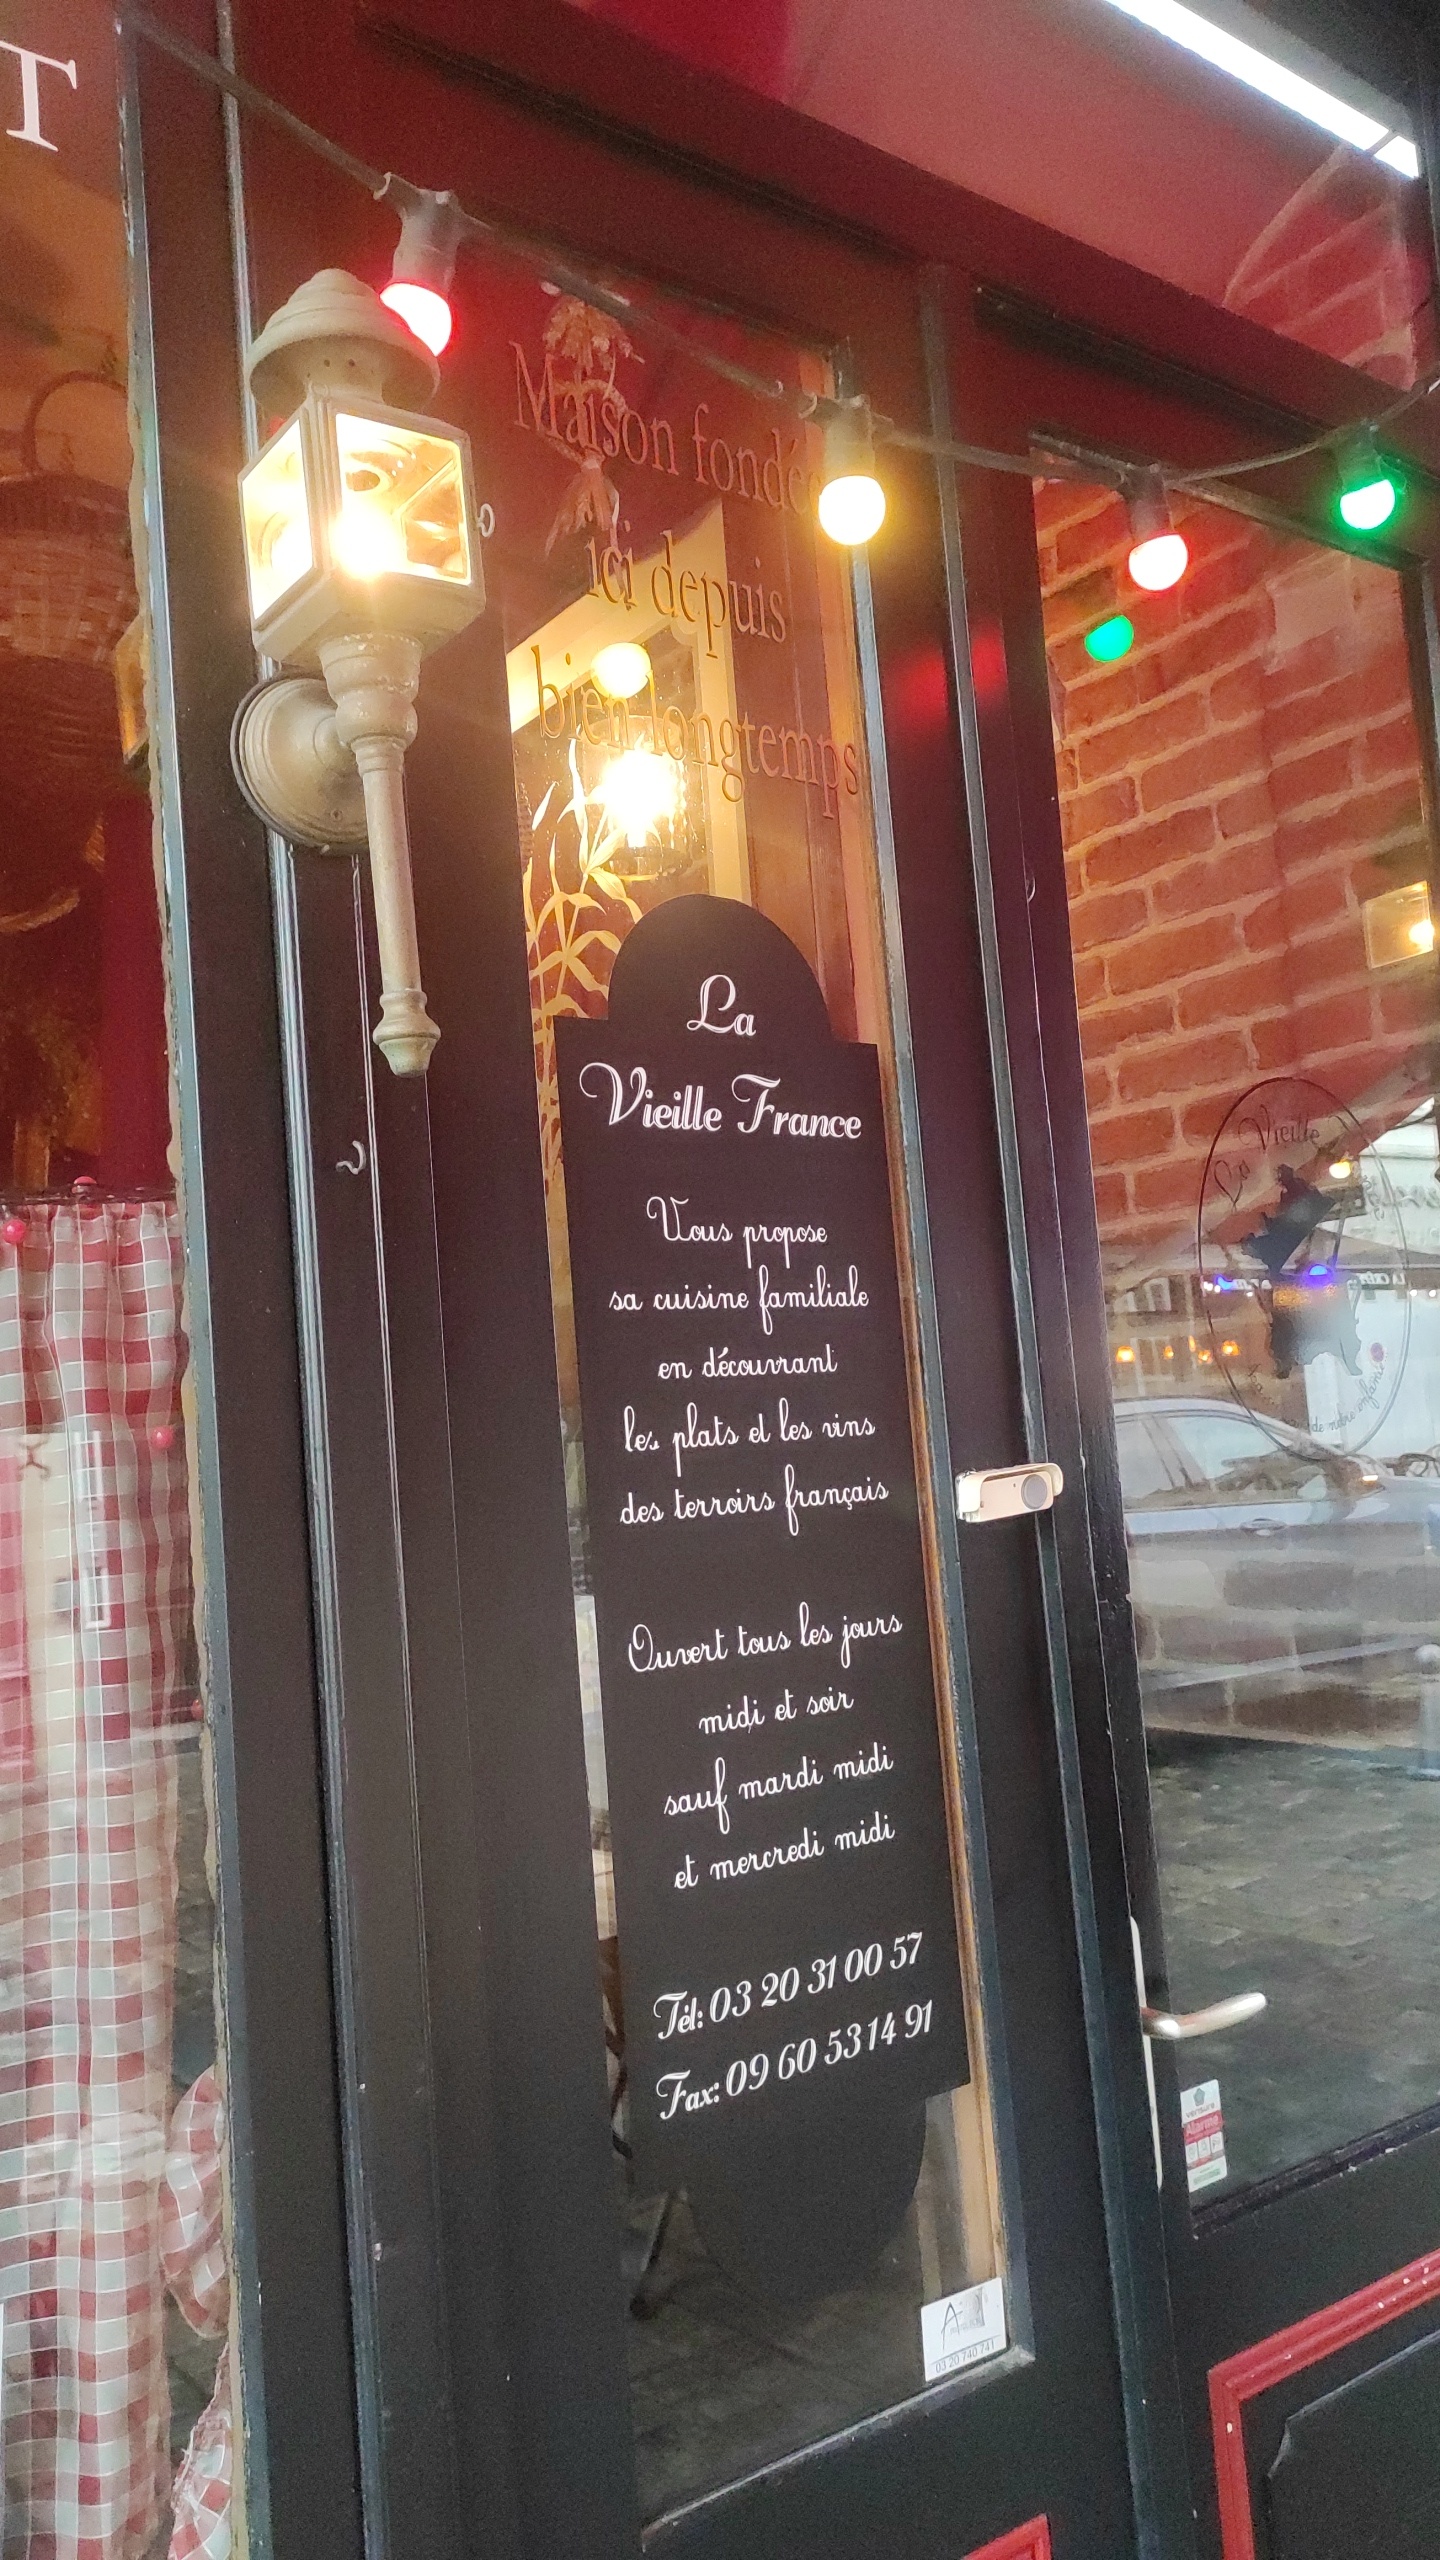 T
Maison fondée
ici depuis
bien longtemps
La
Vieille France
Vous propose
sa cuisine familiale
en découvrant
les plats et les vins
des terroirs français
Ouvert tous les jours
midi et soir
sauf mardi midi
et mercredi midi
Tél: 03 20 31 00 57
Fax: 09 60 53 14 91
La Vieille
de notre enfance
verisure
Alarme
03 20 740 741